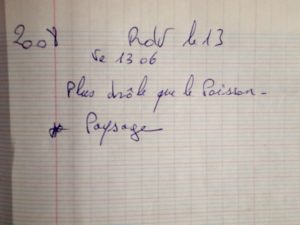 2008 Rdv le 13
Ve 13 06
Plus drôle que le Poisson -
* Paysage